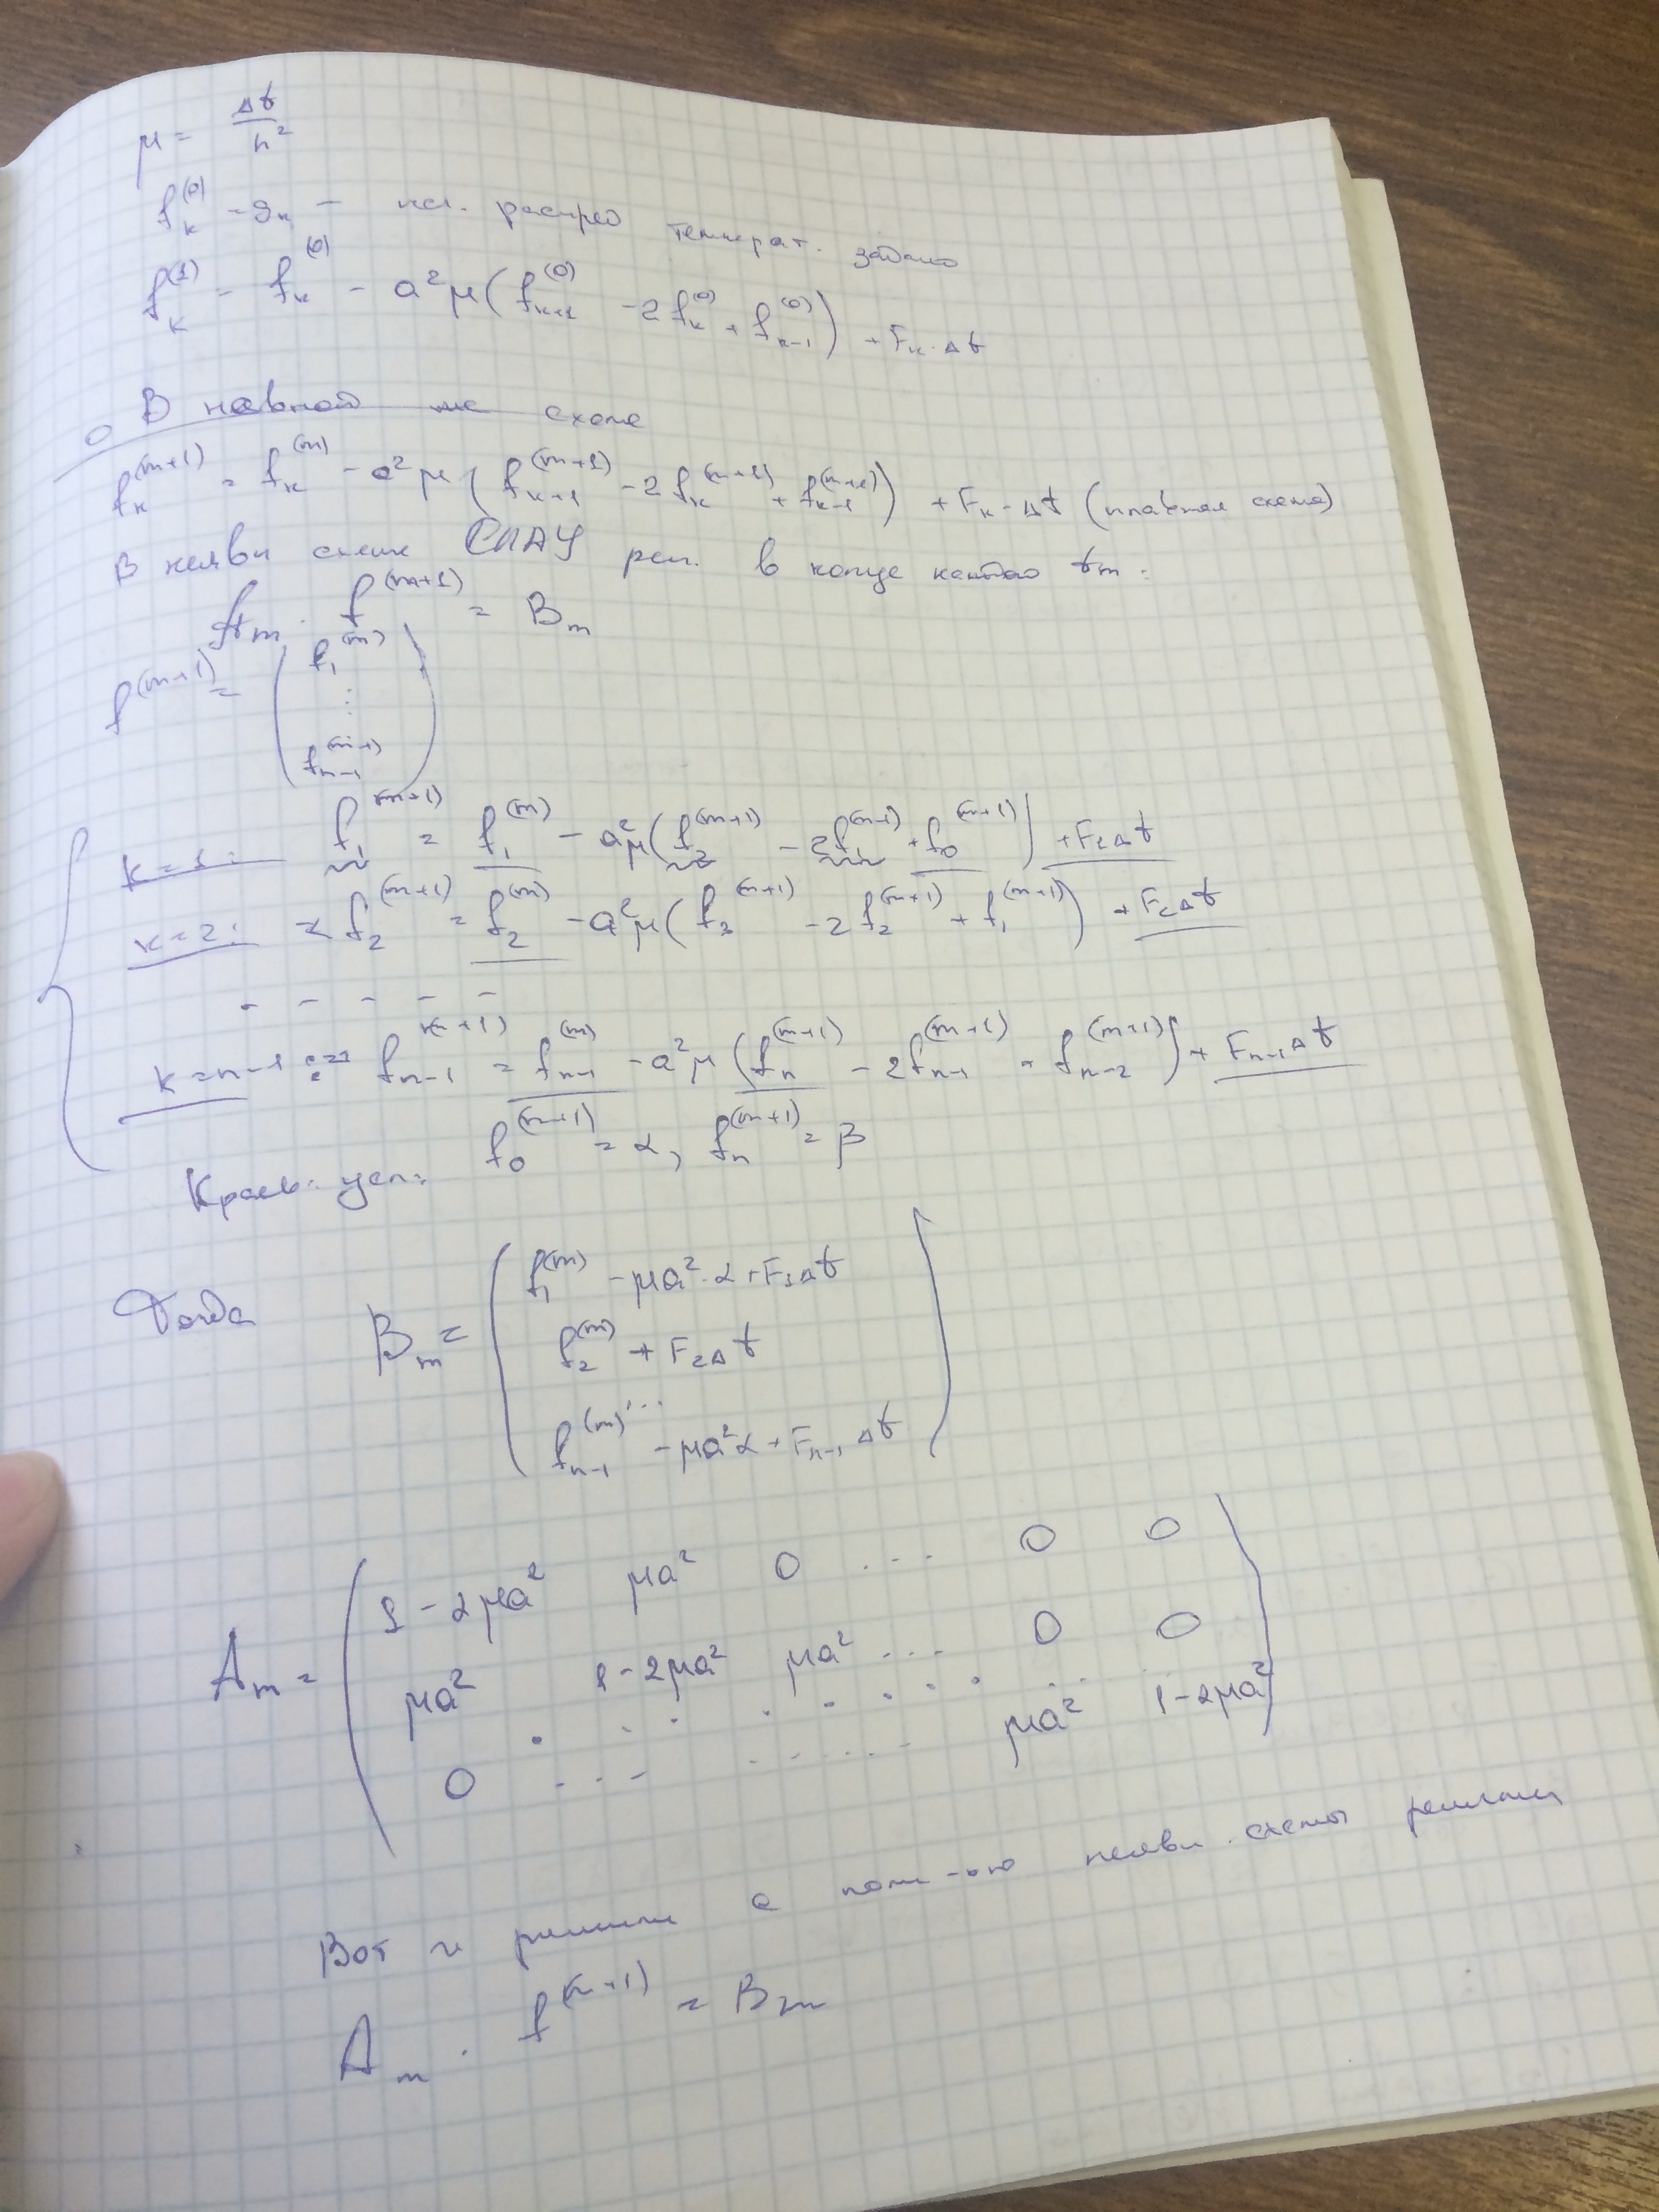 μ = Δt / h²
f_k^(0) = g_k – распред температ. задано
f_k^(1) = f_k^(0) - a²μ(f_{k+1}^(0) - 2f_k^(0) + f_{k-1}^(0)) + F_k·Δt
В неявной же схеме
f_k^(m+1) = f_k^(m) - a²μ(f_{k+1}^(m+1) - 2f_k^(m+1) + f_{k-1}^(m+1)) + F_k·Δt (схема)
В неявн схеме СЛАУ реш. в конце каждого t_m:
A_m · f^(m+1) = B_m
f^(m+1) = ( f_1^(m)
⋮
f_{n-1}^(m+1) )
k=1: f_1^(m+1) = f_1^(m) - a²μ(f_2^(m+1) - 2f_1^(m+1) + f_0^(m+1)) + F_1Δt
k=2: f_2^(m+1) = f_2^(m) - a²μ(f_3^(m+1) - 2f_2^(m+1) + f_1^(m+1)) + F_2Δt
- - - - -
k=n-1: f_{n-1}^(m+1) = f_{n-1}^(m) - a²μ(f_n^(m+1) - 2f_{n-1}^(m+1) + f_{n-2}^(m+1)) + F_{n-1}Δt
Краев. усл: f_0^(m+1) = α, f_n^(m+1) = β
Тогда B_m = ( f_1^(m) - μa²·α + F_1Δt
f_2^(m) + F_2Δt
...
f_{n-1}^(m) - μa²α + F_{n-1}Δt )
A_m = ( 1-2μa² μa² 0 ... 0 0
μa² 1-2μa² μa² ... 0 0
0 ... ... μa² 1-2μa² )
Вот и решили с пом-ою неявн. схемы
A_m · f^(m+1) = B_m